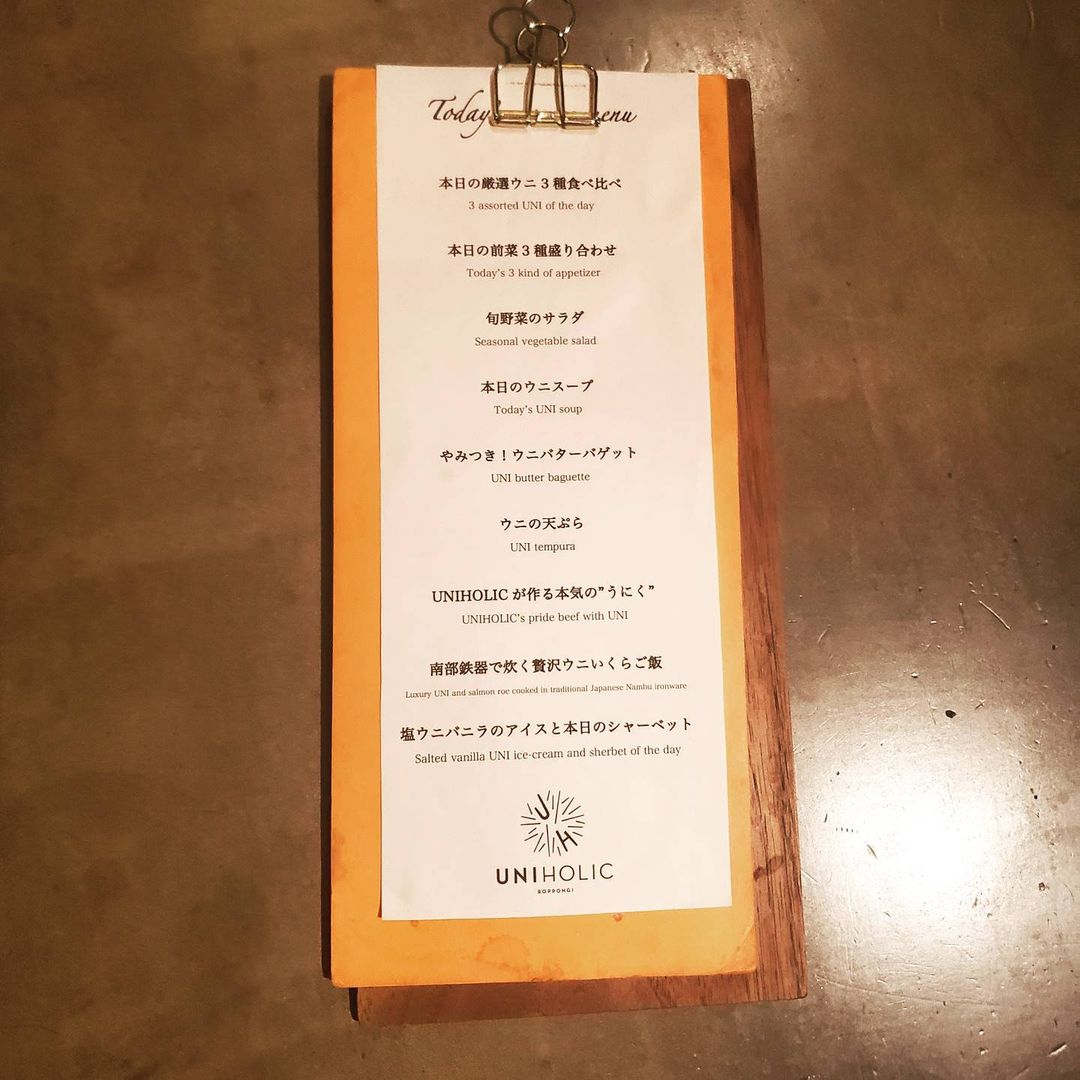 Today
本日の厳選ウニ3種食べ比べ
3 assorted UNI of the day
本日の前菜3種盛り合わせ
Today's 3 kind of appetizer
旬野菜のサラダ
Seasonal vegetable salad
本日のウニスープ
Today's UNI soup
やみつき！ウニバターバゲット
UNI butter baguette
ウニの天ぷら
UNI tempura
UNIHOLIC が作る本気の”うにく”
UNIHOLIC's pride beef with UNI
南部鉄器で炊く贅沢ウニいくらご飯
Luxury UNI and salmon roe cooked in traditional Japanese Nambu ironware
塩ウニバニラのアイスと本日のシャーベット
Salted vanilla UNI ice-cream and sherbet of the day
U
H
UNIHOLIC
ROPPONGI